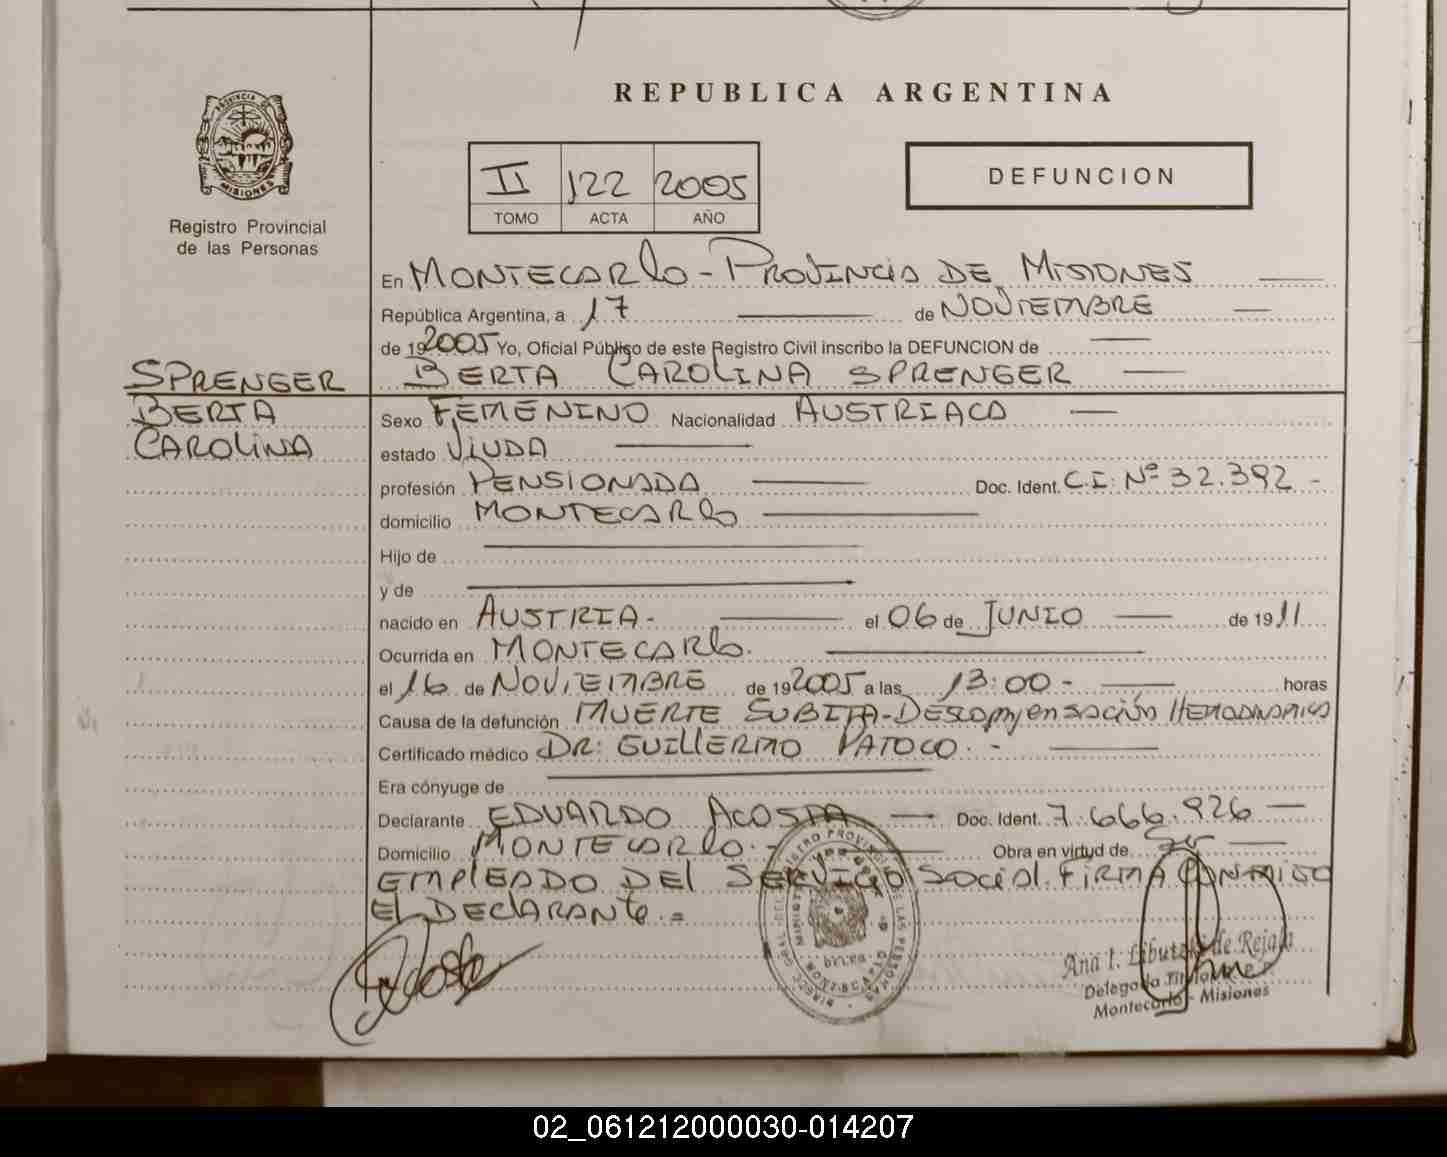 REPUBLICA ARGENTINA
PROVINCIA DE
MISIONES
Registro Provincial
de las Personas
II 122 2005
TOMO ACTA AÑO
DEFUNCION
En MONTECARLO - PROVINCIA DE MISIONES
República Argentina, a 17 de NOVIEMBRE
de 192005 Yo, Oficial Público de este Registro Civil inscribo la DEFUNCION de
BERTA CAROLINA SPRENGER
SPRENGER
BERTA
CAROLINA
Sexo FEMENINO Nacionalidad AUSTRIACA
estado VIUDA
profesión PENSIONADA Doc. Ident. C.I. Nº 32.392 -
domicilio MONTECARLO
Hijo de
y de
nacido en AUSTRIA - el 06 de JUNIO de 1911
Ocurrida en MONTECARLO.
el 16 de NOVIEMBRE de 192005 a las 13:00 - horas
Causa de la defunción MUERTE SUBITA - DESCOMPENSACIÓN HEMODINAMICA
Certificado médico DR: GUILLERMO PATOCO. -
Era cónyuge de
Declarante EDUARDO ACOSTA Doc. Ident. 7.666.926
Domicilio MONTECARLO. - Obra en virtud de Ser
EMPLEADO DEL SERVICIO SOCIAL. FIRMA CONMIGO
EL DECLARANTE. =
Ana I. de Rejala
Delegada Titular
Montecarlo - Misiones
02_061212000030-014207